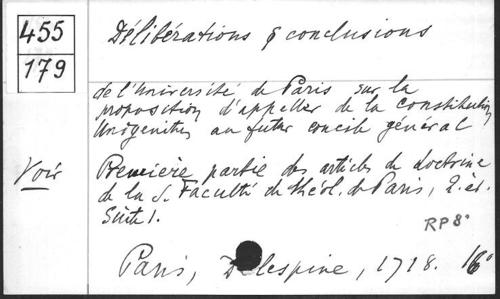 455
179
Délibérations & conclusions
de l'Université de Paris sur la
proposition d'appeller de la constitution
Unigenitus au futur concile général
Voir
Première partie des articles de doctrine
de la S. Faculté de théol. de Paris, 2. éd.
Suite 1.
RP 8°
Paris, Delespine, 1718. 16°